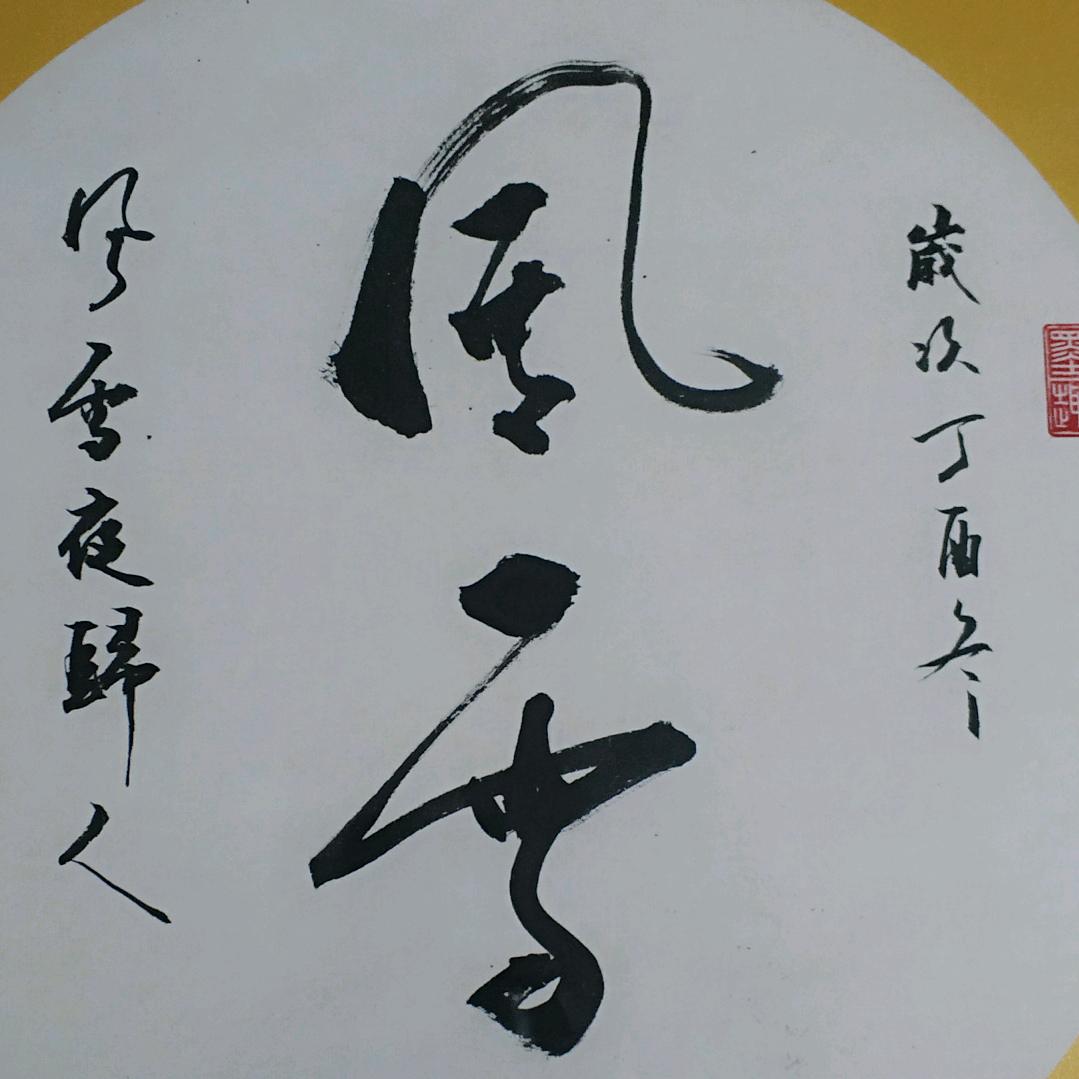 歲次丁酉冬
風雪
風雪夜歸人